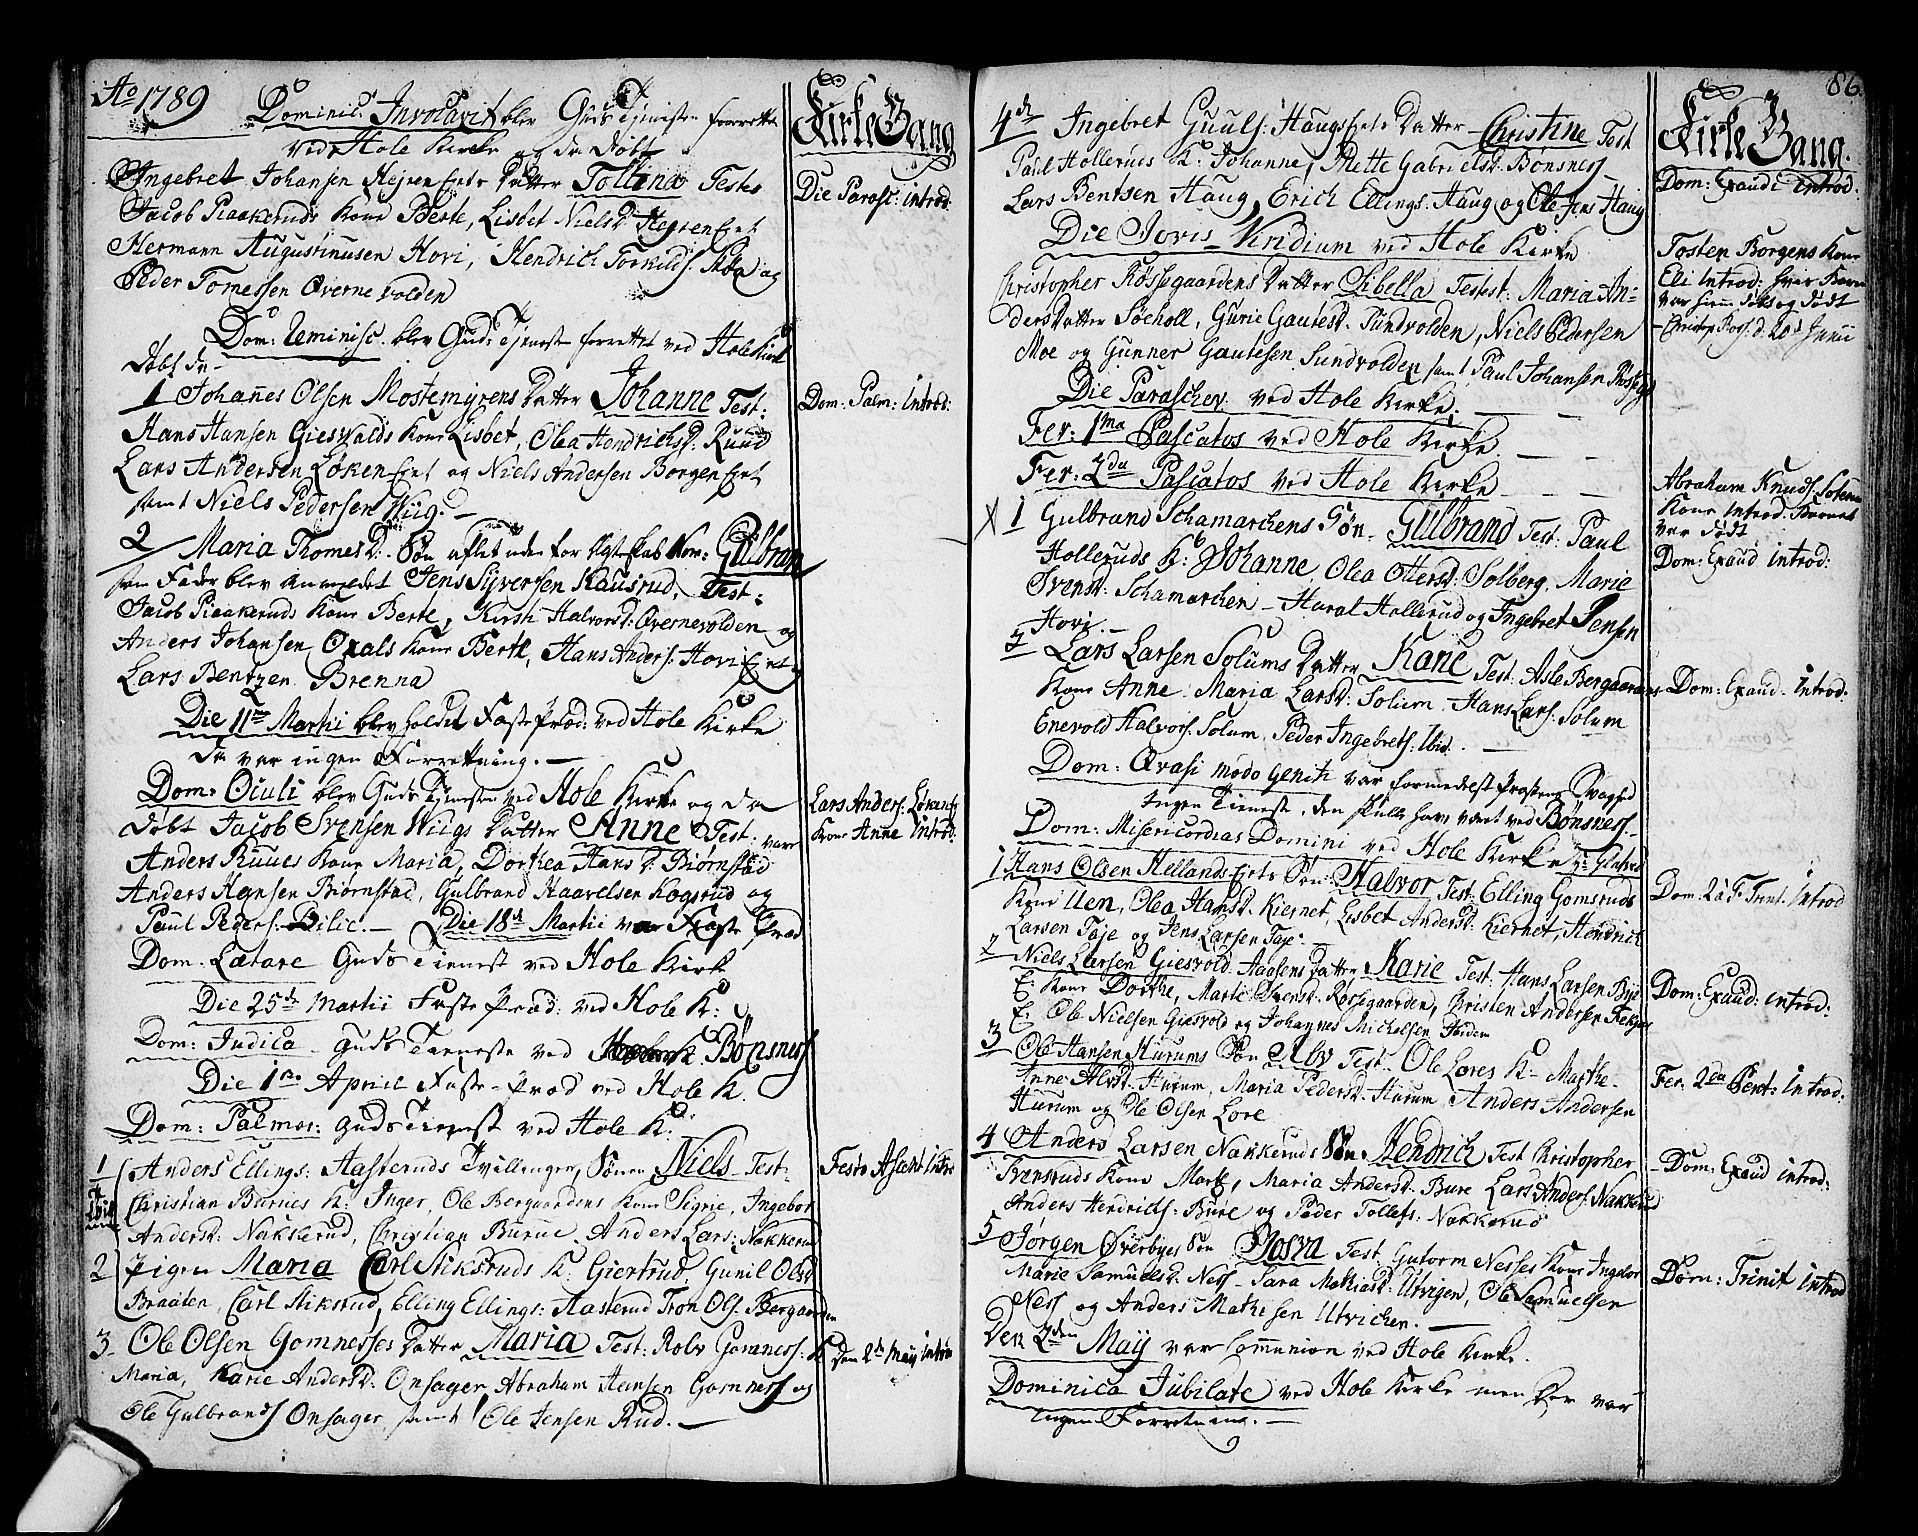 Ao 1789
Dominic: Invocavit blev Guds Tjeneste forrettet
ved Hole Kirke og da Døbt
Ingebret Johansen Hejren Eets Datter Tollena Testes
Jacob Piaakeruds Kone Berte, Lisbet Nielsd Hejren Eiet
Hermann Augustinusen Hovi, Hendrich Torkilds. Moe og
Peder Tomessen Øverne volden
Dom: Reminisc. blev Guds Tjeneste forrettet ved Hole Kirke
Døbt da
1 Johannes Olsen Mostemyrens Datter Johanne Test:
Hans Hansen Giesvalds Kone Lisbet, Olea Hendrichsd. Ruud
Lars Andersen Løken Eiet og Niels Andersen Borgen Eiet
samt Niels Pedersen Wiig.
2 Maria Thomesd. Søn aflet uden for Ægteskab Nom: Gulbran
som Fader blev anmeldet Jens Syversen Kausrud, Test:
Jacob Piaakeruds Kone Berte, Kirsti Halvorsd. Øvernevolden og
Anders Johansen Oxals Kone Berte, Hans Anders: Hovi Eiet
Lars Bentzen Brenna
Die 11me Martii blev holdet Faste Præd: ved Hole Kirke
da var ingen Forretning.
Dom: Oculi blev Guds Tjeneste ved Hole Kirke og da
Døbt Jacob Svensen Wiigs Datter Anne Test. vare
Anders Ruues Kone Maria, Dorthea Hans d. Biørnstad
Anders Hansen Biørnstad, Gulbrand Haavelsen Kogsrud og
Paul Peders: Bilie. Die 18d Martii var Faste Præd
Dom: Lætare Guds Tienest ved Hole Kirk
Die 25de Martii Faste Præd: ved Hole K:
Dom: Judica Guds Tieneste ved Bønsness
Die 1ma April Faste-Præd ved Hole K.
Dom: Palmar: Guds Tienest ved Hole K:
1 Anders Ellings: Aasteruds Tvillinger, Sønen Niels Test:
Christian Burues K: Inger, Ole Bergaardens Kone Sigrie, Ingebor
Andersd: Nakkerud, Christian Burue, Anders Lars: Nakkerud
2 Pigen Maria Carl Stiksruds K: Giertrud, Gunil Olsd
Braaten, Carl Stiksrud, Elling Ellings: Aasterud Tron Ols. Bergaarden
3 Ole Olsen Gomnesses Datter Maria Test: Rolv Gomness: K
Maria, Karie Andersd: Onsager Abraham Hansen Gomness og
Ole Gulbrands Onsager, samt Ole Jensen Rud.
Kirke Gang
Die Parasc: introd:
Dom: Palm: Introd:
Lars Anders: Løkens
Kone Anne Introd:
Festo Ascent Intro
Den 2de Maij intro
86.
4de Ingebret Guuls: Haugs Eiets Datter Christine Test
Paul Holleruds K: Johanne, Mette Gabrielsd. Bønsness
Lars Bentsen Haug, Erich Ellings: Haug og Ole Jens Haug
Die Jovis Viridium ved Hole Kirke
Christopher Røssegaardens Datter Libella Testest: Maria An-
dersdatter Søeholl, Gurie Gautesd. Sundvolden, Niels Pedersen
Moe og Gunner Gautesen Sundvolden samt Paul Johansen Røsseg
Die Parascheu ved Hole Kirke.
Fer: 1ma Pascatos ved Hole Kirke.
Fer: 2da Pascatos ved Hole Kirke
X 1 Gulbrand Schamarchens Søn Gulbrand Test: Paul
Holleruds K: Johanne, Olea Ottersd: Solberg, Marie
Svensd: Schamarchen - Haral Hollerud og Ingebret Jensen
Hovi.
2 Lars Larsen Solums Datter Karie Test: Asle Bergaardens
Kone Anne. Maria Larsd: Solum. Hans Lars: Solum
Enevold Halvors. Solum, Peder Ingebrets. Ibid.
Dom: Qvasi modo geniti var formedelst Præstens Svaghed
Ingen Tieneste, den skulle have været ved Bønsness
Dom: Misericordias Domini ved Hole Kirke
1 Hans Olsen Hellands Eiets Søn: Halvor, Test: Elling Gomsruds
Kone Uen, Olea Hansd. Kiernet, Lisbet Andersd: Kiernet, Hendrich
Larsen Taje og Jens Larsen Taje.
2 Niels Larsen Giesvold Aaasens Datter Karie Test: Hans Larsen Bye
E: Kone Dorthe, Marte Svensd. Røssegaarden, Kristen Andersen Fekjær
E: Ole Nielsen Giesvold og Johannes Michelsen Ibidem
3 Ole Hansen Hurums Søn Alov Test. Ole Lores K: Marthe.
Anne Alvsd. Hurum, Maria Pedersd. Hurum, Anders Andersen
Hurum og Ole Olsen Lore
4 Anders Larsen Nakkeruds Søn: Hendrich Test Christopher
Svensruds Kone Marte, Maria Andersd. Bure Lars Anders: Nakkerud
Anders Hendrichs: Bure og Peder Tollefs: Nakkerud
5 Jørgen Øverbyes Søn Test. Gutorm Nesses Kone Ingebor
Marie Samuelsd. Ness - Sara Mathiasd: Utvigen, Ole Samuelsen
Ness og Anders Mathisen Utvichen.
Den 2den Maij var Communion ved Hole Kirke.
Dominica Jubilate ved Hole Kirke men der var
ingen Forretning.
Kirke Gang.
Dom: Exaudi introd:
Tosten Borgens Kone
Eli Introd: hvis Barn
var hiemme døbt og dødt
Christop Ross: d. 20d Junii
Abraham Knuds: Kone
Introd. Barnet
var dødt
Dom: Exaud introd:
Dom: Exaud. Introd:
Dom: 2 a F: Trinit. Introd
Dom: Exaud: introd:
Fer. 2da Pent: Introd:
Dom: Exaud introd:
Dom: Trinit Introd